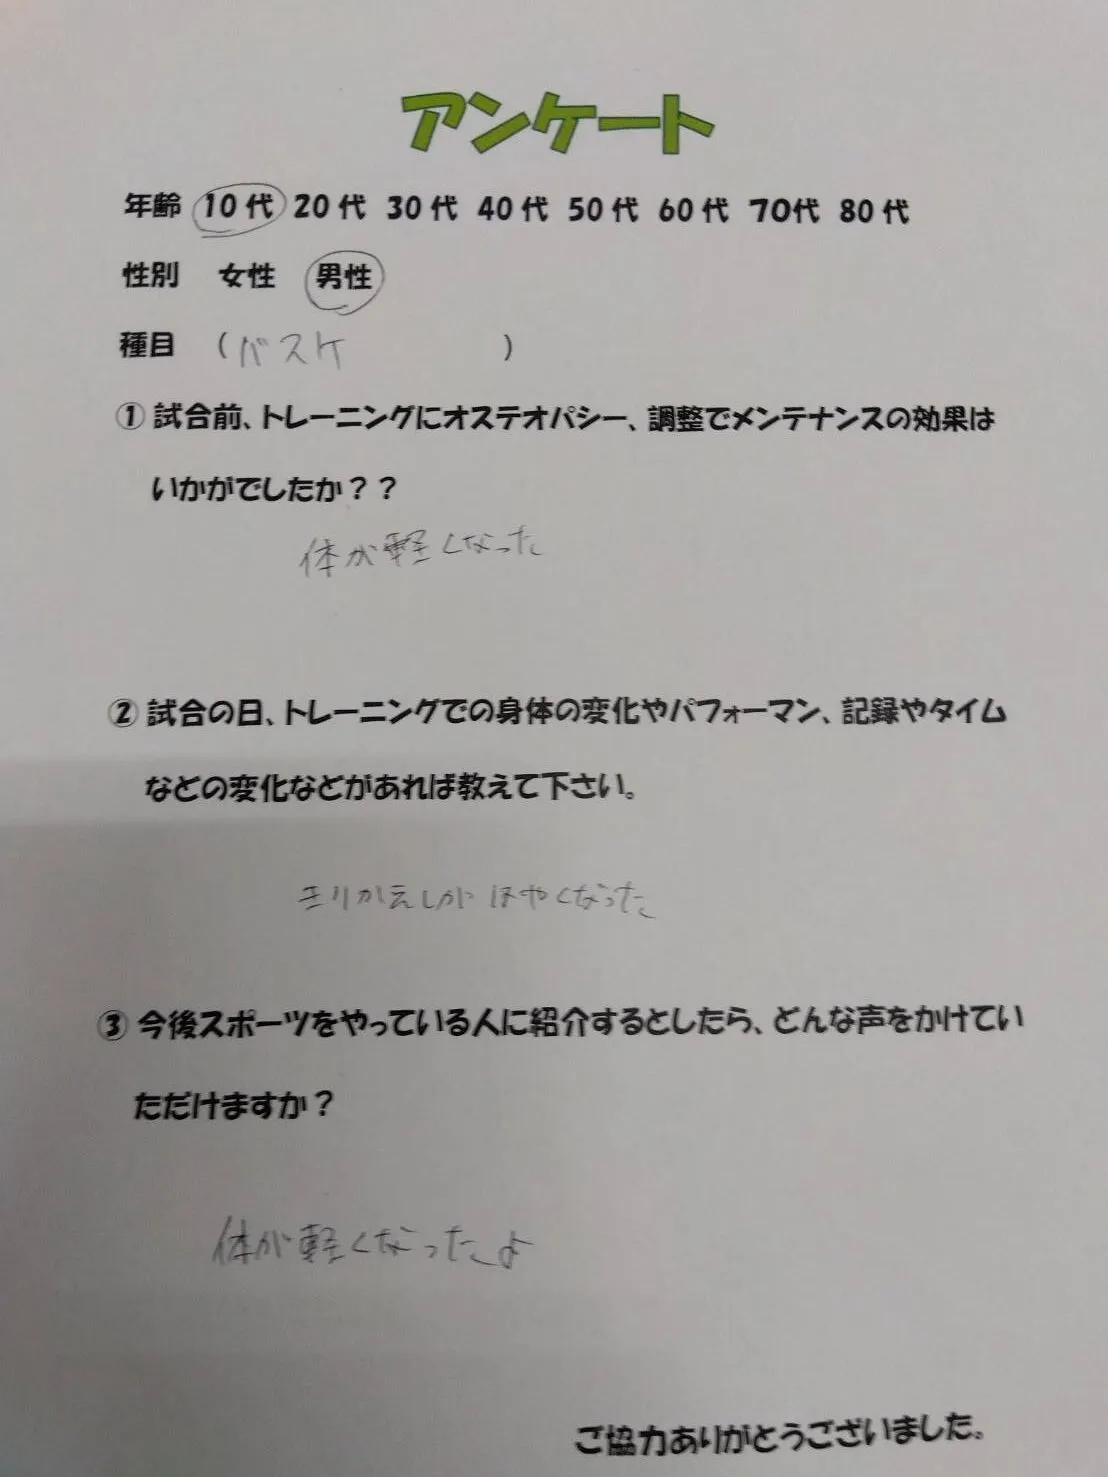 アンケート
年齢 10代 20代 30代 40代 50代 60代 70代 80代
性別 女性 男性
種目 (バスケ )
① 試合前、トレーニングにオステオパシー、調整でメンテナンスの効果は
いかがでしたか？？
体が軽くなった
② 試合の日、トレーニングでの身体の変化やパフォーマン、記録やタイム
などの変化などがあれば教えて下さい。
きりかえしが はやくなった
③ 今後スポーツをやっている人に紹介するとしたら、どんな声をかけてい
ただけますか？
体が軽くなったよ
ご協力ありがとうございました。